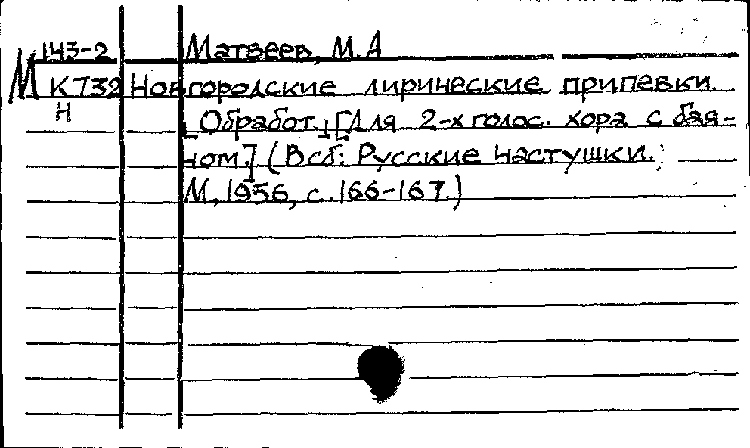 143-2 Матвеев, М.А
М К732 Новгородские лирические припевки.
Н [Обработ.] [Для 2-х голос. хора с бая-
ном.] (В сб: Русские частушки.
М, 1956, с. 166-167.)